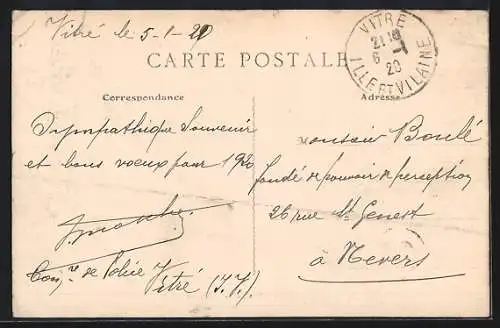 Vitré le 5-1-20
CARTE POSTALE
VITRE
21 15
6 - 1
20
ILLE ET VILAINE
Correspondance
Adresse
Sympathique Souvenir
et bons voeux pour 1920
Comre de Police Vitré (I.V.)
Monsieur Boulé
fondé de pouvoir de perception
26 rue St Genest
à Nevers